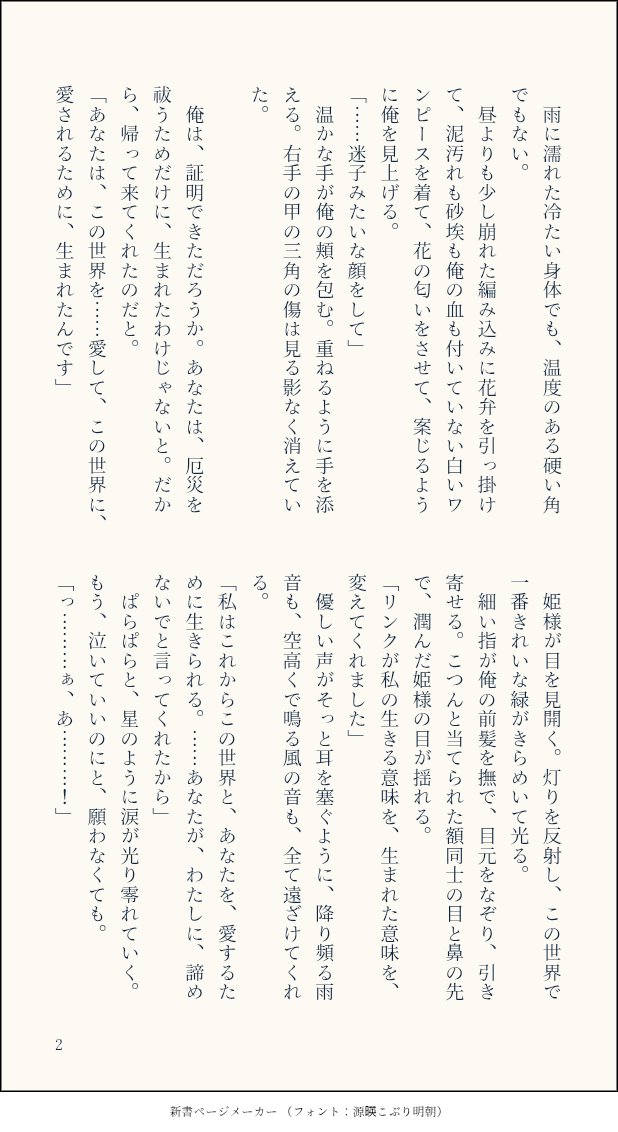 雨に濡れた冷たい身体でも、温度のある硬い角
でもない。
　昼よりも少し崩れた編み込みに花弁を引っ掛け
て、泥汚れも砂埃も俺の血も付いていない白いワ
ンピースを着て、花の匂いをさせて、案じるよう
に俺を見上げる。
「……迷子みたいな顔をして」
　温かな手が俺の頬を包む。重ねるように手を添
える。右手の甲の三角の傷は見る影なく消えてい
た。
　俺は、証明できただろうか。あなたは、厄災を
祓うためだけに、生まれたわけじゃないと。だか
ら、帰って来てくれたのだと。
「あなたは、この世界を……愛して、この世界に、
愛されるために、生まれたんです」
　姫様が目を見開く。灯りを反射し、この世界で
一番きれいな緑がきらめいて光る。
　細い指が俺の前髪を撫で、目元をなぞり、引き
寄せる。こつんと当てられた額同士の目と鼻の先
で、潤んだ姫様の目が揺れる。
「リンクが私の生きる意味を、生まれた意味を、
変えてくれました」
　優しい声がそっと耳を塞ぐように、降り頻る雨
音も、空高くで鳴る風の音も、全て遠ざけてくれ
る。
「私はこれからこの世界と、あなたを、愛するた
めに生きられる。……あなたが、わたしに、諦め
ないでと言ってくれたから」
　ぱらぱらと、星のように涙が光り零れていく。
もう、泣いていいのにと、願わなくても。
「っ………ぁ、あ………！」
2
新書ページメーカー（フォント：源暎こぶり明朝）